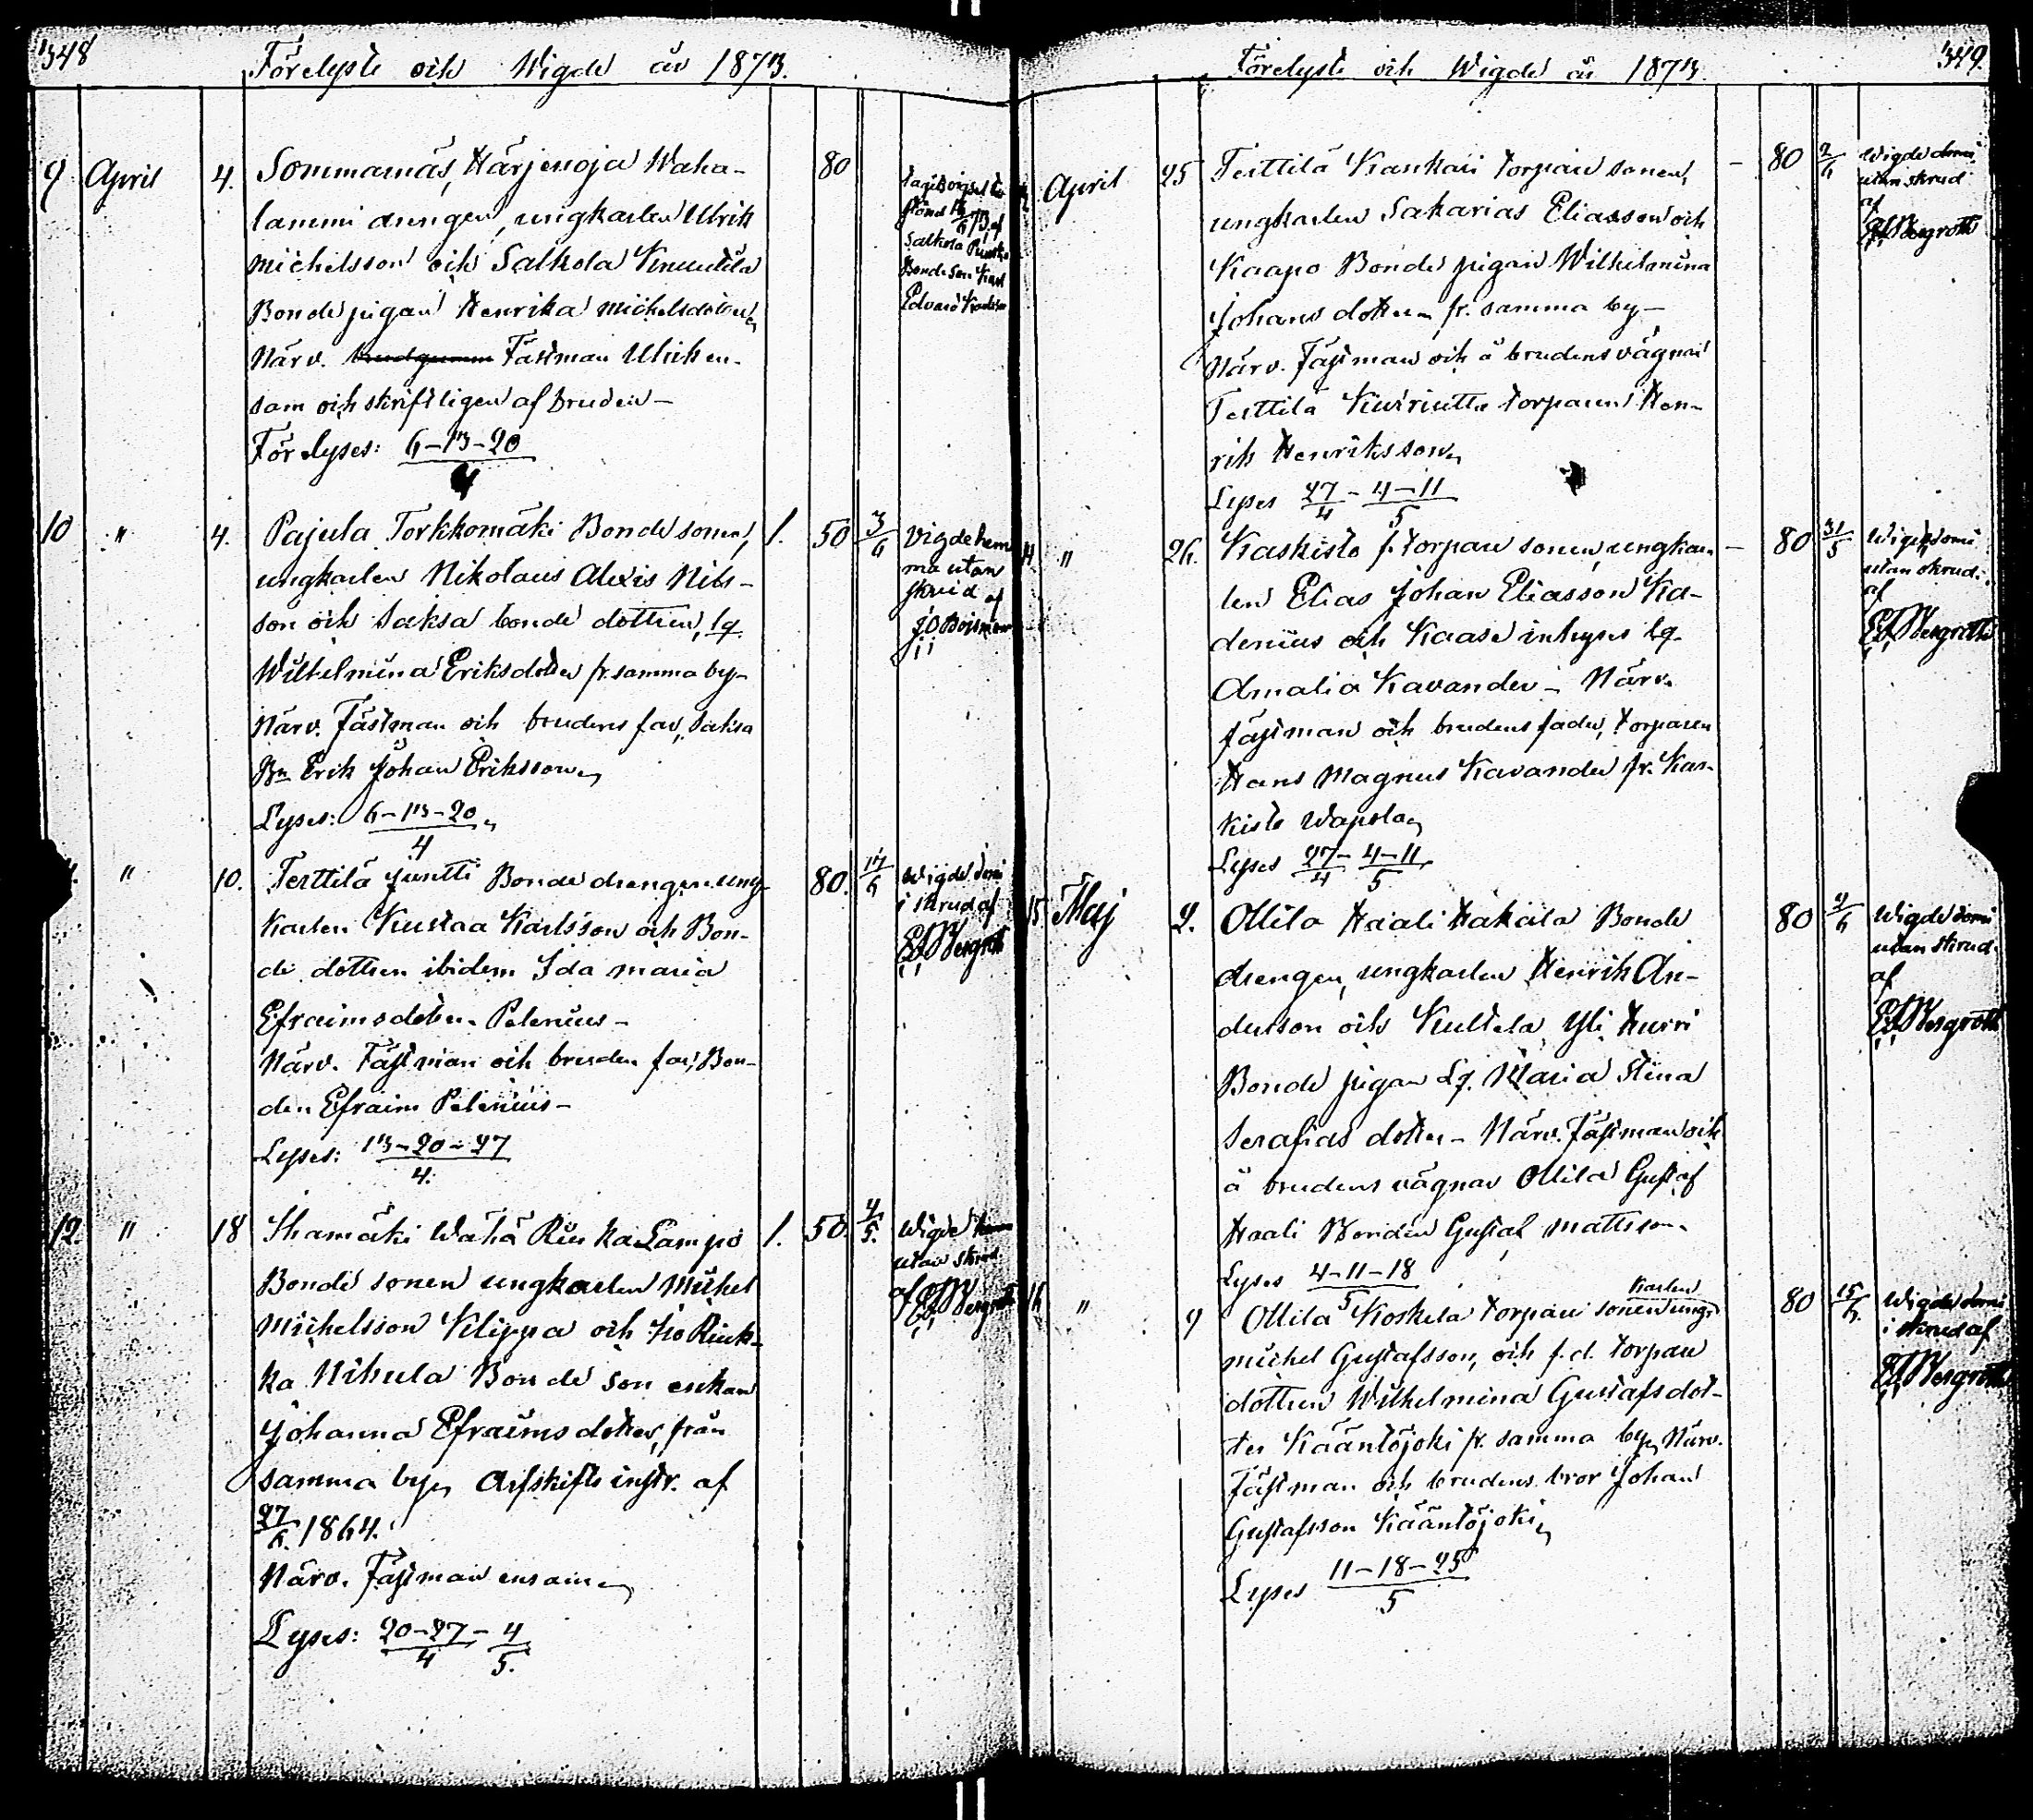 348
Förelyste och Wigde år 1873.
9 April 4. Sommarnäs, Härjenoja Waha- 80
lammi drengen, ungkarlen Ulrik
Michelsson och Salkola Knuutila
Bonde pigan Henrika Michelsdotter,
Närv. Fästman Ulrik en-
sam och skriftligen af bruden –
Förelyses: 6–13–20
4
Salkola
Bonde son Karl
Edvard
10 " 4. Pajula Torkkomäki Bonde sonen, 1. 50 3/6 Vigde hem
ungkarlen Nikolaus Alexis Nils- ma utan
son och Saksa bonde dottren, lq. skrud af
Wilhelmina Eriksdotter fr. samma by–
Närv. Fästman och brudens far, Saksa
Bn Erik Johan Eriksson,
Lyses: 6–13–20,
4
" 10. Terttilä Juntti Bonde drengen ung- 80. Wigde domi
karlen Kustaa Karlsson och Bon- i skrud af
de dottren ibidem Ida Maria Bergroth
Efraimsdotter Pelenius –
Närv. Fästman och bruden far, Bon-
den Efraim Pelenius –
Lyses: 13–20–27
4.
12. " 18 Wähä Riukka Lampo 1. 50. 4/5. Wigde
Bonde sonen ungkarlen Michel utan skrud
Michelsson Klippa och Iso Riuk- af Bergroth
ka Nikula Bonde son enkan
Johanna Efraimsdotter, från
samma by, Arfskifte instr. af
27/6. 1864.
Närv. Fästman ensam,
Lyses: 20–27 – 4
4 5.
349.
Förelyste och Wigde år 1873.
April 25 Terttilä Kankari torpare sonen, – 80 2/6 Wigde domi
ungkarlen Sakarias Eliasson och utan skrud
Kaapo Bonde pigan Wilhelmina af
Johans dotter, fr. samma by – Bergroth
Närv. Fästman och å brudens vägnar
Terttilä torparen Hen-
rik Henriksson,
Lyses 27 – 4–11
4 5
" 26. Kaskisto f. torpare sonen, ungkar- – 80 31/5 Wigde domi
len Elias Johan Eliasson Ka- utan skrud.
denius och Kaase inhyses lq. af
Amalia Kavander – Närv. Bergroth
fästman och brudens fader, torparen
Hans Magnus Kavander fr. Kas-
kisto Wapola,
Lyses 27 – 4–11
4 5
15 Maj 2. Ollila Haali Hakala Bonde 80 Wigde domi
drengen, ungkarlen Henrik An- utan skrud.
dersson och Kultela Yli Hurri af
Bonde pigan Lq. Maria Stina Bergroth
Serafias dotter – Närv. Fästman och
å brudens vägnar Ollila Gustaf
Haali Bonden Gustaf Mattsson.
Lyses 4–11–18
5
karlen
16 " 9 Ollila Koskela torpare sonen ung- 80 15/6. Wigde domi
Michel Gustafsson, och f. d. torpare i skrud af
dottren Wilhelmina Gustafsdot- Bergroth
ter Kääntöjoki fr. samma by, Närv.
Fästman och brudens bror Johan
Gustafsson Kääntöjoki,
Lyses 11–18–25
5